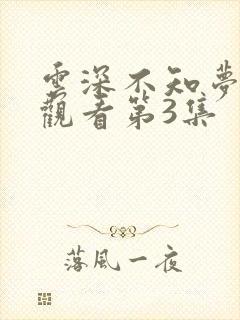 雲深不知夢
觀看第3集
落風一夜